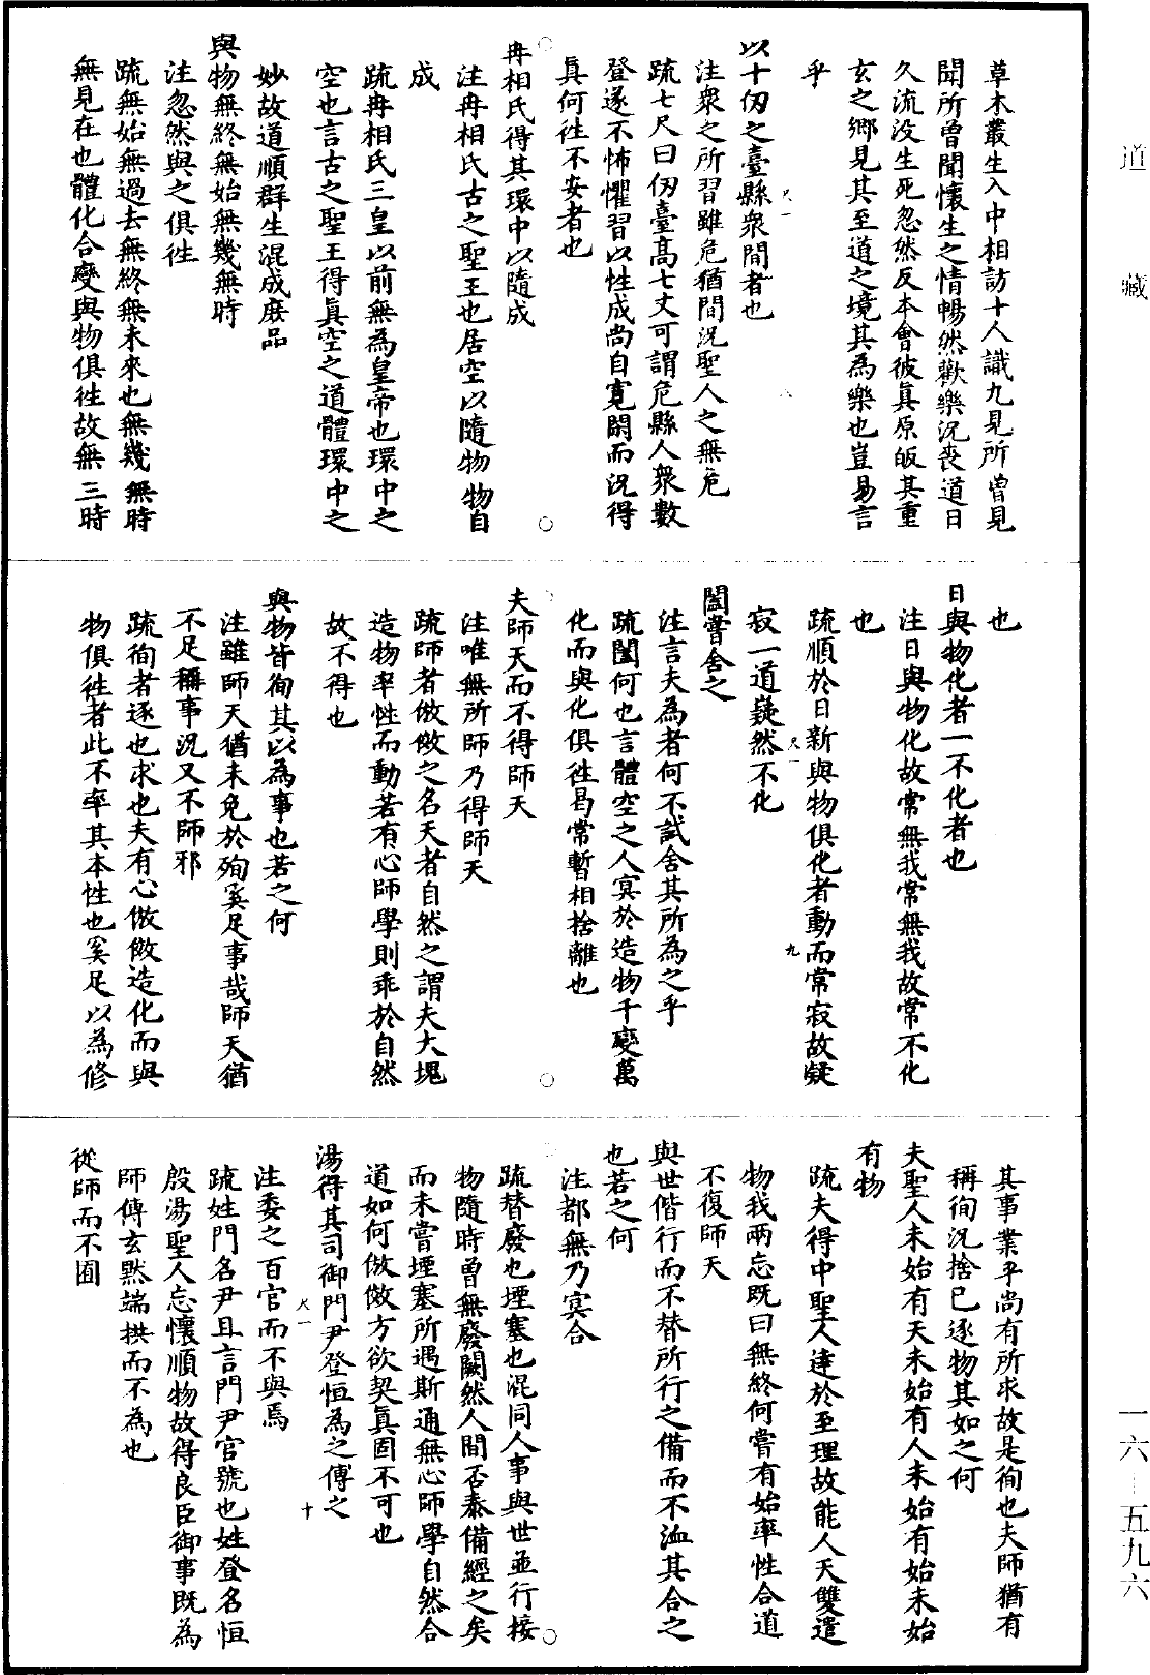 草木叢生入中相訪十人識九見所曾見
聞所曾聞懷生之情暢然歡樂況喪道日
久流没生死忽然反本會彼真原皈其重
玄之鄉見其至道之境其為樂也豈易言
乎
以十仞之臺縣衆間者也
注衆之所習雖危猶間況聖人之無危
疏七尺曰仞臺高七丈可謂危縣人衆數
登遂不怖懼習以性成尚自寬閑而況得
真何徃不安者也
冉相氏得其環中以隨成
注冉相氏古之聖王也居空以隨物物自
成
疏冉相氏三皇以前無為皇帝也環中之
空也言古之聖王得真空之道體環中之
妙故道順群生混成庶品
與物無終無始無幾無時
注忽然與之俱徃
疏無始無過去無終無未來也無幾無時
無見在也體化合變與物俱徃故無三時
也
日與物化者一不化者也
注日與物化故常無我常無我故常不化
也
疏順於日新與物俱化者動而常寂故凝
寂一道嶷然不化
闔嘗舍之
注言夫為者何不試舍其所為之乎
疏闔何也言體空之人冥於造物千變萬
化而與化俱徃曷常暫相捨離也
夫師天而不得師天
注唯無所師乃得師天
疏師者倣傚之名天者自然之謂夫大塊
造物率性而動若有心師學則乖於自然
故不得也
與物皆徇其以為事也若之何
注雖師天猶未免於殉奚足事哉師天猶
不足稱事況又不師邪
疏徇者逐也求也夫有心倣傚造化而與
物俱徃者此不率其本性也奚足以為修
其事業乎尚有所求故是徇也夫師猶有
稱徇況捨己逐物其如之何
夫聖人未始有天未始有人未始有始未始
有物
疏夫得中聖人達於至理故能人天雙遣
物我兩忘既曰無終何嘗有始率性合道
不復師天
與世偕行而不替所行之備而不洫其合之
也若之何
注都無乃冥合
疏替廢也堙塞也混同人事與世並行接
物隨時曾無廢闕然人間否泰備經之矣
而未嘗堙塞所遇斯通無心師學自然合
道如何倣傚方欲契真固不可也
湯得其司御門尹登恒為之傅之
注委之百官而不與焉
疏姓門名尹且言門尹官號也姓登名恒
殷湯聖人忘懷順物故得良臣御事既為
師傅玄默端拱而不為也
從師而不囿
道藏
一六—五九六
尺一
九
尺一
十